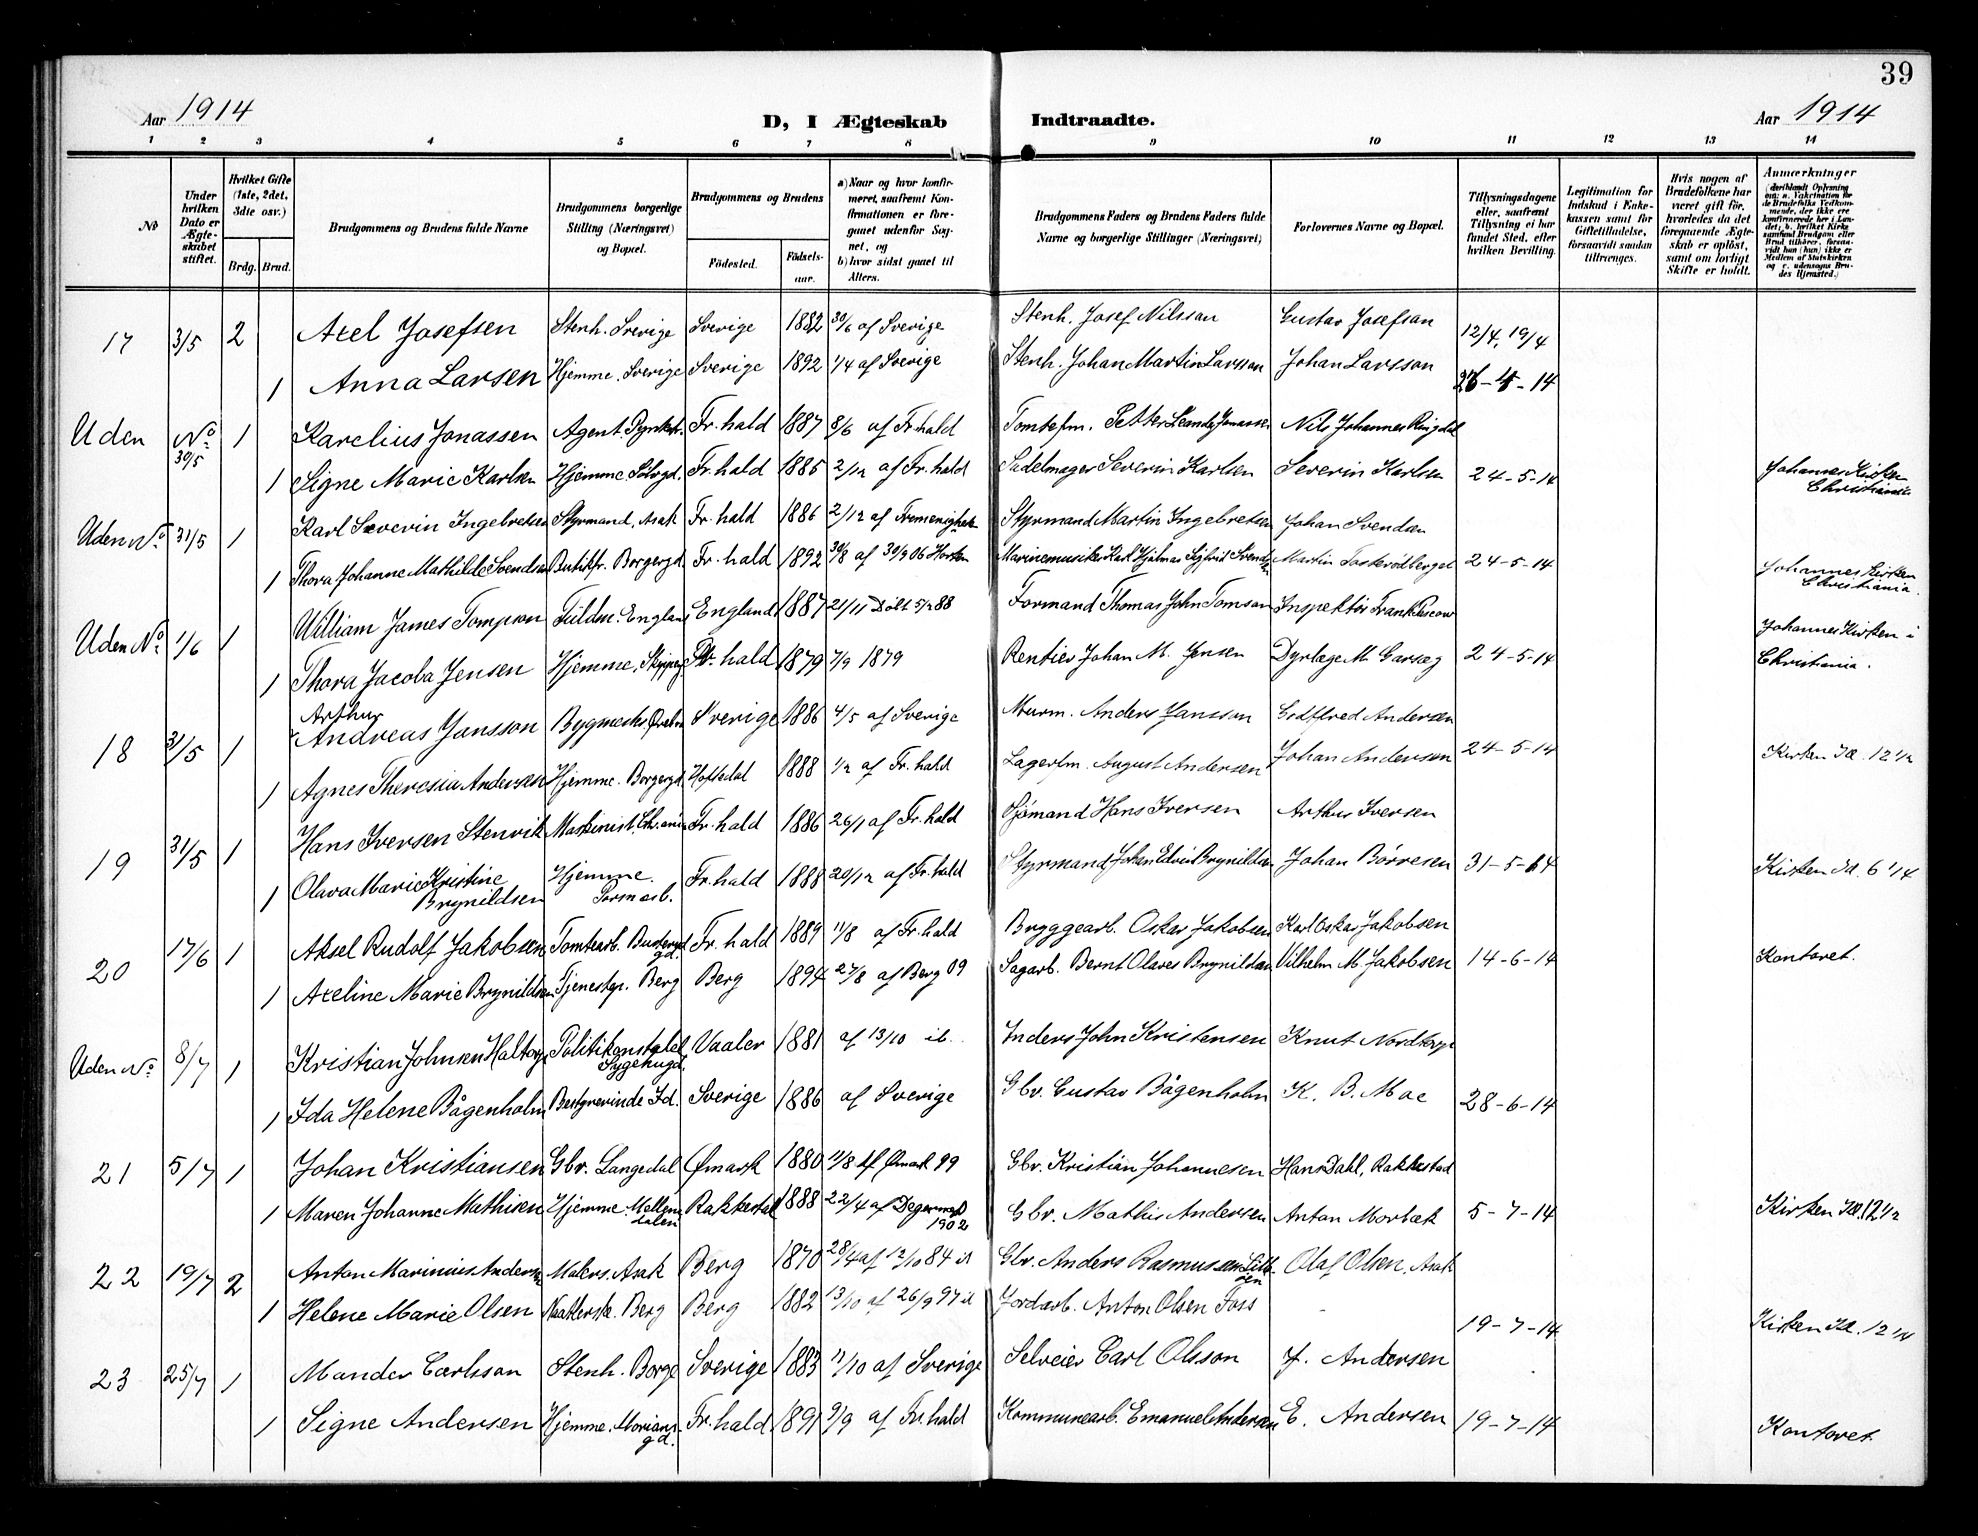 39
Aar 1914
D, I Ægteskab Indtraadte.
Aar 1914
1 2 3 4 5 6 7 8 9 10 11 12 13 14
No
Under hvilken Dato er Ægteskabet stiftet.
Hvilket Gifte (1ste, 2det, 3die osv.)
Brdg. Brud.
Brudgommens og Brudens fulde Navne
Brudgommens borgerlige Stilling (Næringsvei) og Bopæl.
Brudgommens og Brudens
Fødested. Fødselsaar.
a) Naar og hvor konfirmeret, saafremt Konfirmationen er foregaaet udenfor Sognet, og
b) hvor sidst gaaet til Alters.
Brudgommens Faders og Brudens Faders fulde Navne og borgerlige Stillinger (Næringsvei)
Forlovernes Navne og Bopæl.
Tillysningsdagene eller, saafremt Tillysning ei har fundet Sted, efter hvilken Bevilling.
Legitimation for Indskud i Enkekassen samt for Giftetilladelse, forsaavidt saadan tiltrænges.
Hvis nogen af Brudefolkene har været gift før, hvorledes da det foregaaende Ægteskab er opløst, samt om lovligt Skifte er holdt.
Anmærkninger
17 3/5 2 Axel Josefsen Stenh. Sverige Sverige 1882 30/6 af Sverige Stenh. Josef Nilsson Gustav Josefson 12/4, 19/4
1 Anna Larsen Hjemme. Sverige Sverige 1892 1/4 af Sverige Stenh. Johan Martin Larsson Johan Larsson 26-4-14
Uden No 30/5 1 Karelius Jonassen Agent. Fr. hald 1887 8/6 af Fr. hald Tomtefm. Petter Leander Jonassen Nils Johannes Ringdal
1 Signe Marie Karlsen Hjemme Fr. hald 1885 2/12 af Fr. hald Sadelmager Severin Karlsen Severin Karlsen 24-5-14 Johannes Kirken Christiania
Uden No 31/5 1 Karl Severin Ingebretsen Styrmand, Asak Fr. hald 1886 2/12 af Frimenighet Styrmand Martin Ingebretsen Johan Svendsen
1 Thora Johanne Mathilde Svendsen Butikfr. Borgergd. Fr. hald 1892 30/8 af 30/9 06 Horten Marinemusiker Karl Hjalmar Sigfrid Svendsen Martin 24-5-14 Johannes Kirken Christiania.
Uden No 1/6 1 William James Tompson England England 1887 21/11 Døbt 5/2 88 Formand Thomas John Tomson Inspektör Frank
1 Thora Jacoba Jensen Hjemme, Fr. hald 1879 7/9 1879 Rentier Johan M. Jensen Dyrlæge M. 24-5-14 Johannes Kirken i Christiania.
18 31/5 1 Arthur Andreas Jansson Bygmester Sverige 1886 4/5 af Sverige Murm. Anders Jansson Gotfred Andersen
1 Agnes Theresia Andersen Hjemme. Borgergd. 1888 1/2 af Fr. hald Lagerfm. August Andersen Johan Anderson 24-5-14 Kirken Kl. 12 1/2
19 31/5 1 Hans Iversen Stenvik Maskinist, Fr. hald 1886 26/1 af Fr. hald Sjømand Hans Iversen Arthur Iversen
1 Olava Marie Kristine Brynildsen Hjemme. Fr. hald 1888 20/12 af Fr. hald Styrmand Johan Edvin Brynildsen Johan Børresen 31-5-14 Kirken Kl. 6 1/4
20 17/6 1 Aksel Rudolf Jakobsen Tomtearb. Fr. hald 1889 11/8 af Fr. hald Bryggearb. Oskar Jakobsen Karl Oskar Jakobsen
1 Axeline Marie Brynildsen Tjenestep. Berg Berg 1894 27/8 af Berg 09 Sagarb. Bernt Olaves Brynildsen Vilhelm M. Jakobsen 14-6-14 Kontoret.
Uden No 8/7 1 Kristian Johnsen Haltorp Politikonstabel Sygehugd. Vaaler 1881 af 13/10 ib. Inders John Kristensen Knut Nordtorp
1 Ida Helene Bågenholm Bestyrerinde Id. Sverige 1886 af Sverige Gbr. Gustav Bågenholm K. B. Moe 28-6-14
21 5/7 1 Johan Kristiansen Gbr. Langedal Ømark 1880 11/8 af Ømark 99 Gbr. Kristian Johannesen Hans Dahl, Rakkestad
1 Maren Johanne Mathisen Hjemme. Mellemdalen Rakkestad 1888 22/4 af Degernes 1902 Gbr. Mathis Andersen Anton Morbæk 5-7-14 Kirken Kl. 12 1/2
22 19/7 2 Anton Marinius Andersen Malers. Asak Berg 1870 28/4 af 12/10 84 ib Gbr. Anders Rasmussen Olaf Olsen, Asak
1 Helene Marie Olsen Berg Berg 1882 13/10 af 26/9 97 ib Jordarb. Anton Olsen Foss 19-7-14 Kirken Kl. 12 1/4
23 25/7 1 Mander Carlsson Stenh. Borge Sverige 1883 11/10 af Sverige Selveier Carl Olsson J. Andersen
1 Signe Andersen Hjemme. gd. Fr. hald 1891 9/9 af Fr. hald Kommunearb. Emanuel Andersen E. Andersen 19-7-14 Kontoret